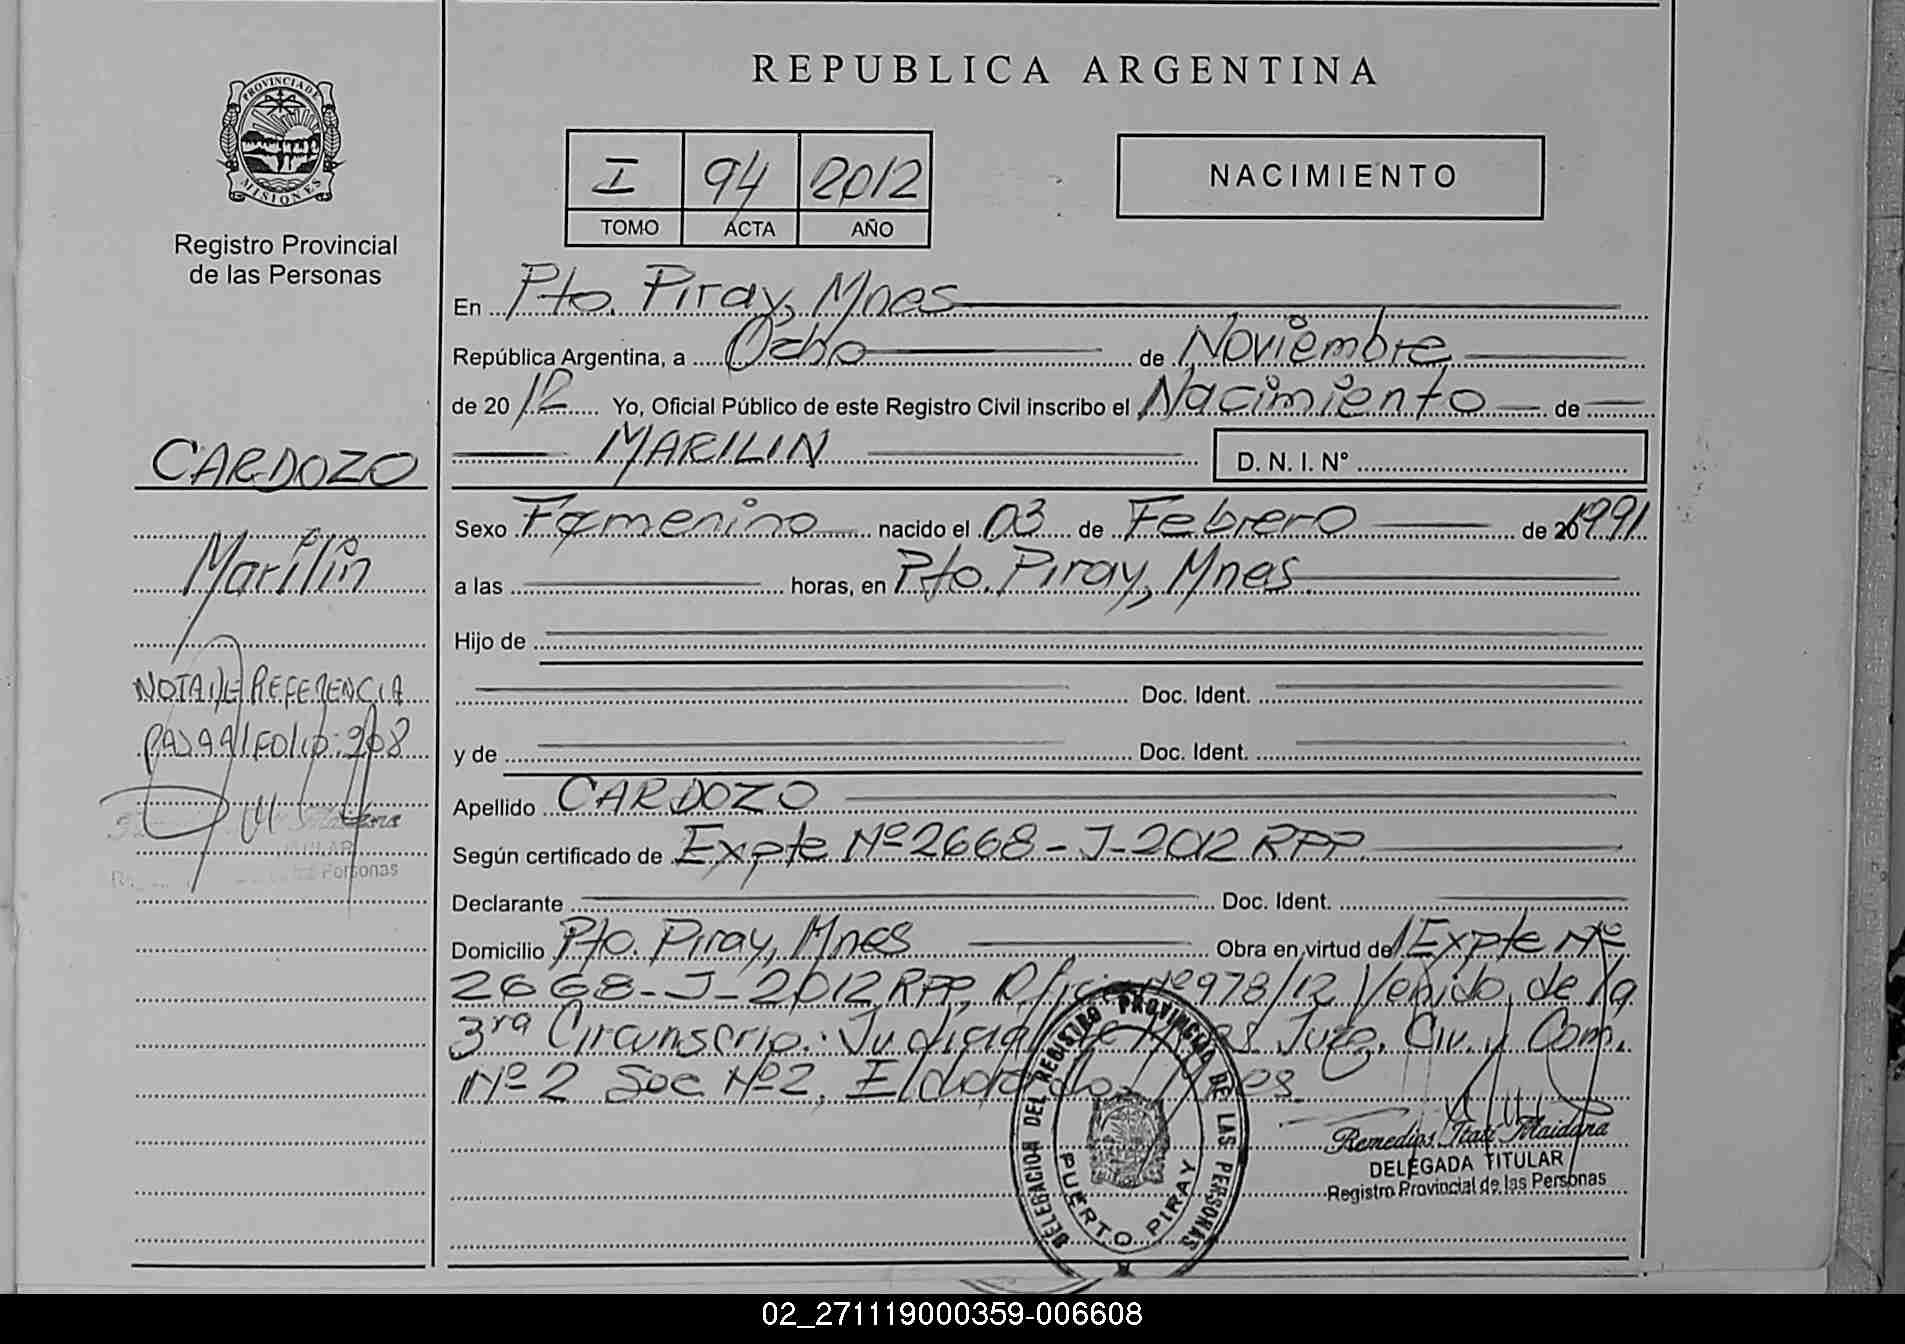 REPUBLICA ARGENTINA
PROVINCIA DE
MISIONES
Registro Provincial
de las Personas
I 94 2012
TOMO ACTA AÑO
NACIMIENTO
En Pto. Piray, Mnes
República Argentina, a Ocho de Noviembre
de 2012 Yo, Oficial Público de este Registro Civil inscribo el Nacimiento de
MARILIN D. N. I. N°
CARDOZO
Marilin
NOTA DE REFERENCIA
PASA AL FOLIO: 208
Personas
Sexo Femenino nacido el 03 de Febrero de 1991
a las horas, en Pto. Piray, Mnes
Hijo de
Doc. Ident.
y de Doc. Ident.
Apellido CARDOZO
Según certificado de Expte Nº 2668-J-2012 RPP
Declarante Doc. Ident.
Domicilio Pto. Piray, Mnes Obra en virtud del Expte Nº
2668-J-2012 RPP, Oficio Nº 978/12 Venido de la
3ra Circunscrip. Judicial de Mnes Juzg. Civ. y Com.
Nº 2 Sec Nº 2, Eldorado, Mnes
DELEGACION DEL REGISTRO PROVINCIAL DE LAS PERSONAS
PUERTO PIRAY
Remedios Itatí Maidana
DELEGADA TITULAR
Registro Provincial de las Personas
02_271119000359-006608